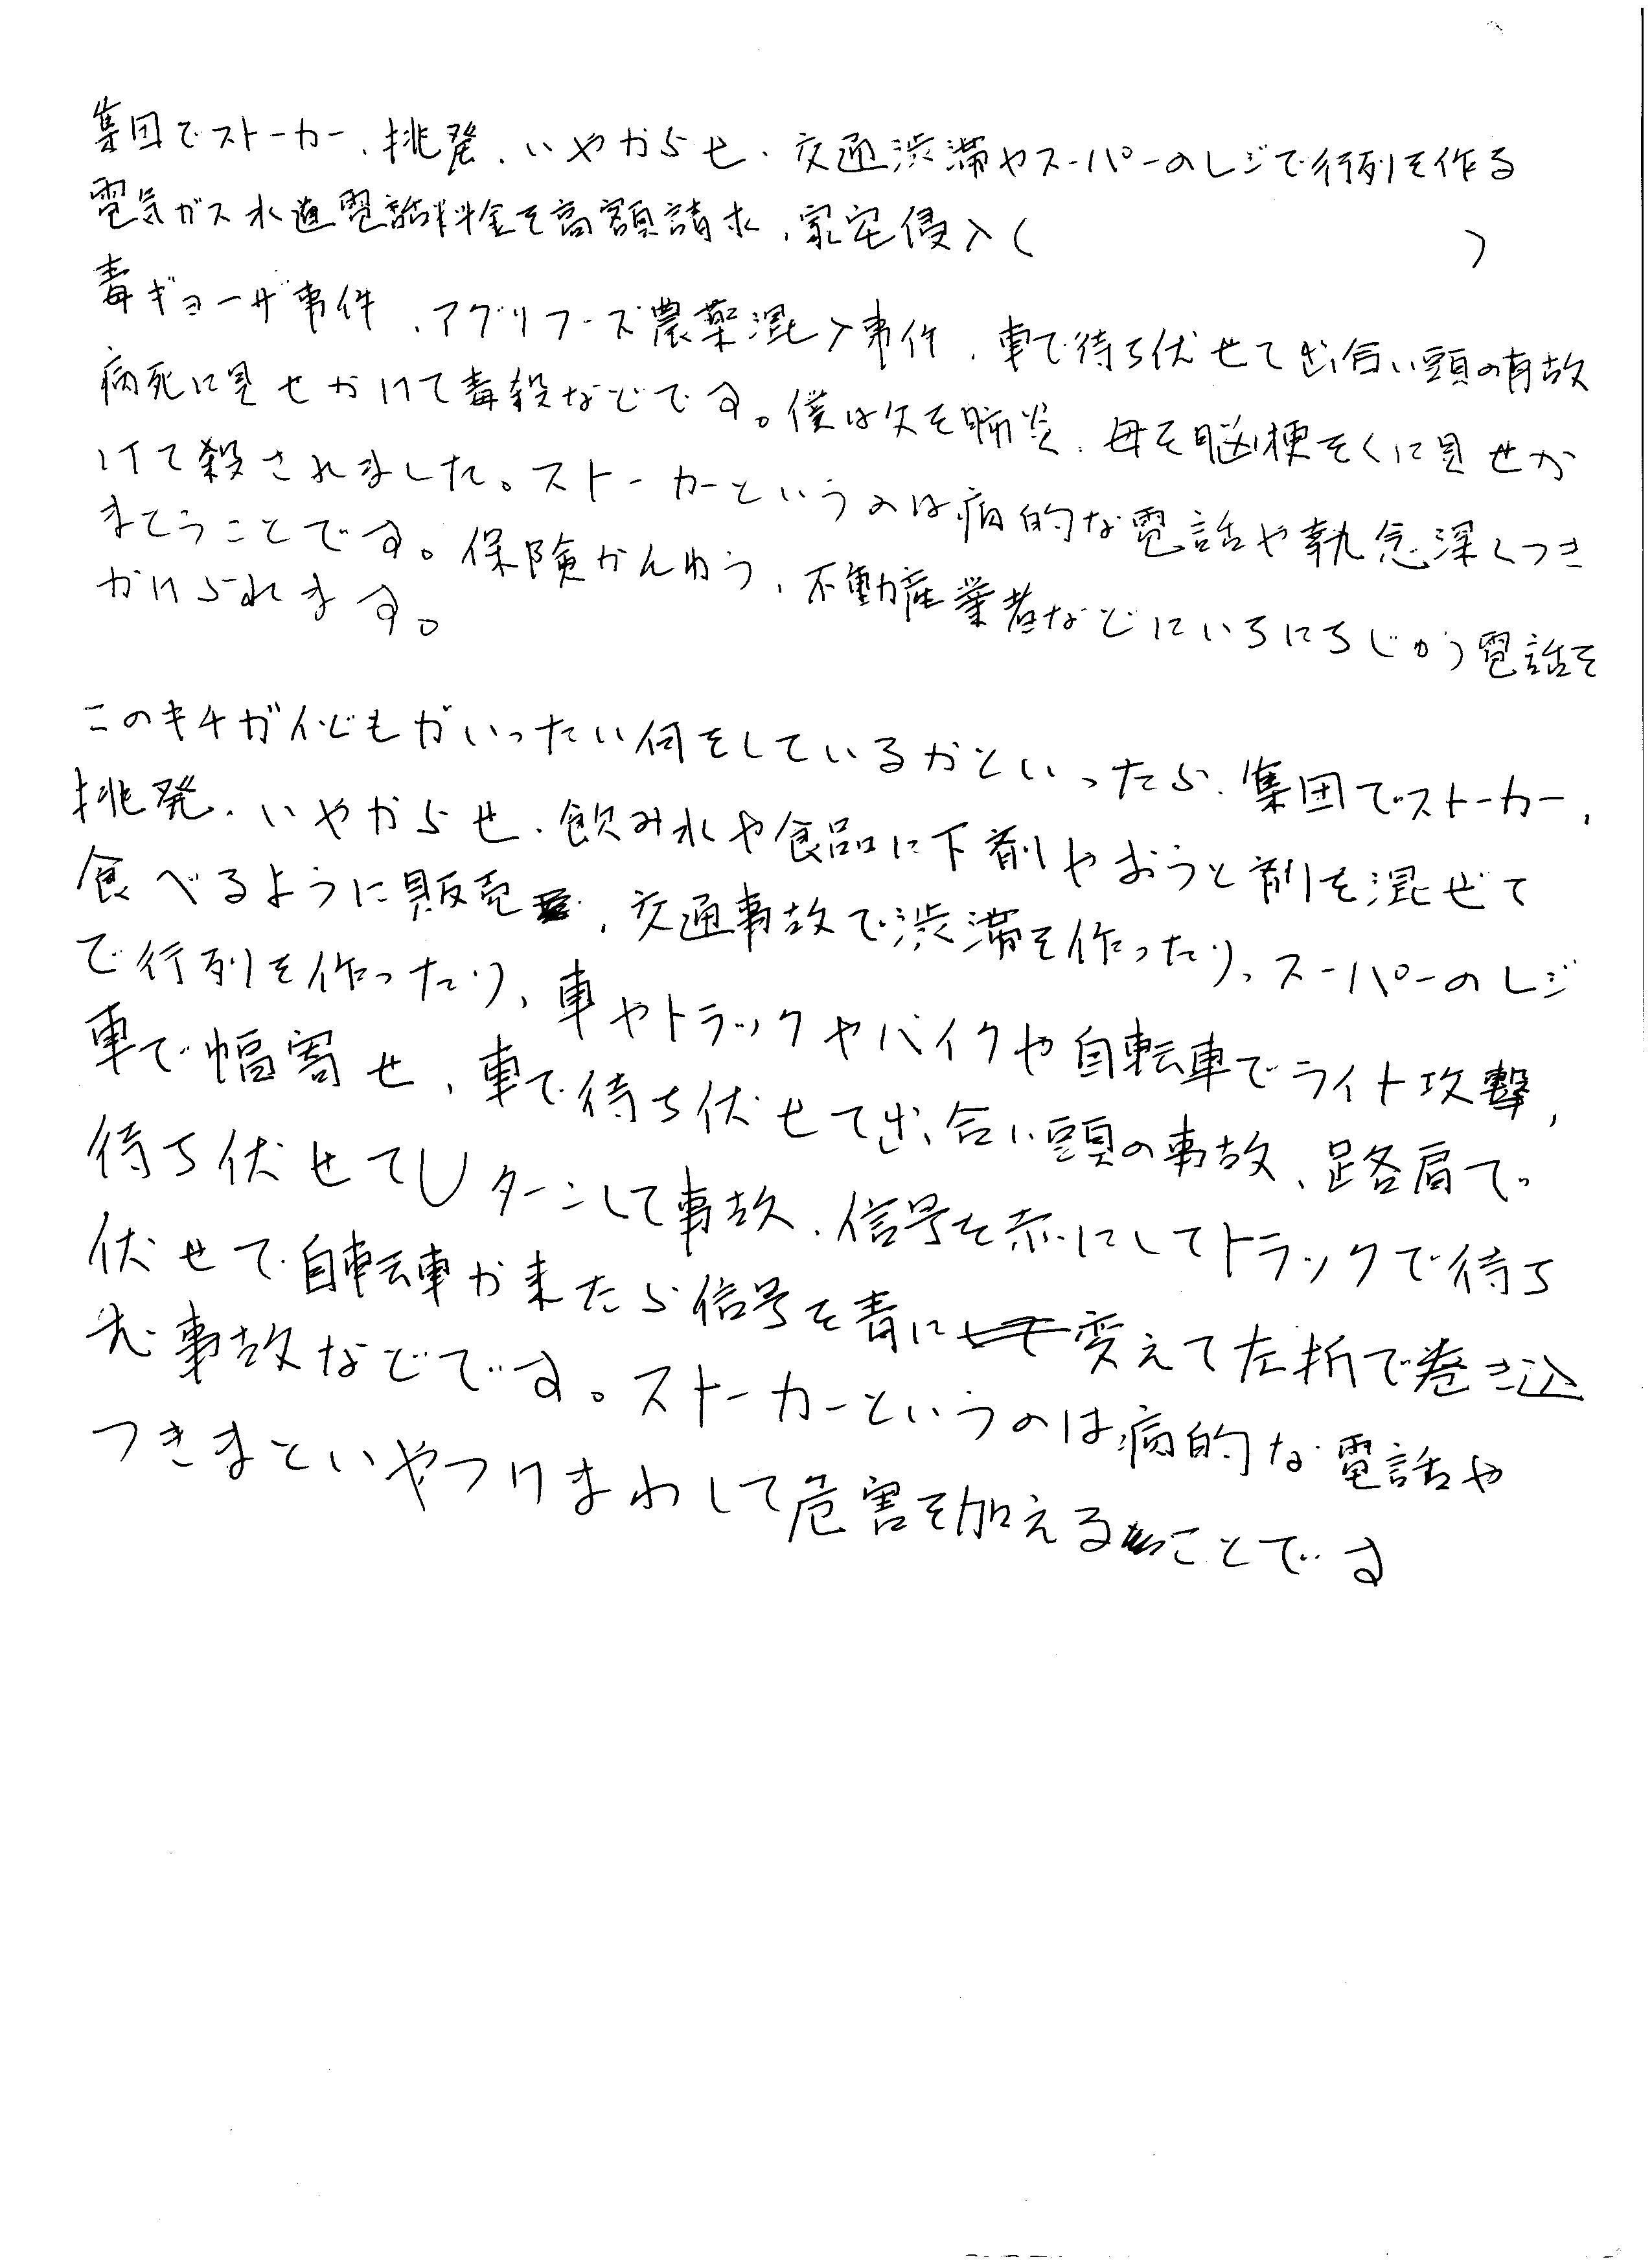 集団でストーカー、挑発、いやがらせ、交通渋滞やスーパーのレジで行列を作る
電気ガス水道電話料金を高額請求、家宅侵入(　　　　)
毒ギョーザ事件、アグリフーズ農薬混入事件、車で待ち伏せて出合い頭の事故
病死に見せかけて毒殺などです。僕は父を肺炎、母を脳梗そくに見せか
けて殺されました。ストーカーというのは病的な電話や執念深くつき
まとうことです。保険かんゆう、不動産業者などにいちにちじゅう電話を
かけられます。
このキチガイどもがいったい何をしているかといったら、集団でストーカー、
挑発、いやがらせ、飲み水や食品に下剤やおうと剤を混ぜて
食べるように販売、交通事故で渋滞を作ったり、スーパーのレジ
で行列を作ったり、車やトラックやバイクや自転車でライト攻撃、
車で幅寄せ、車で待ち伏せて出合い頭の事故、路肩で
待ち伏せてUターンして事故、信号を赤にしてトラックで待ち
伏せて自転車が来たら信号を青に変えて左折で巻き込
む事故などです。ストーカーというのは病的な電話や
つきまといやつけまわして危害を加えることです